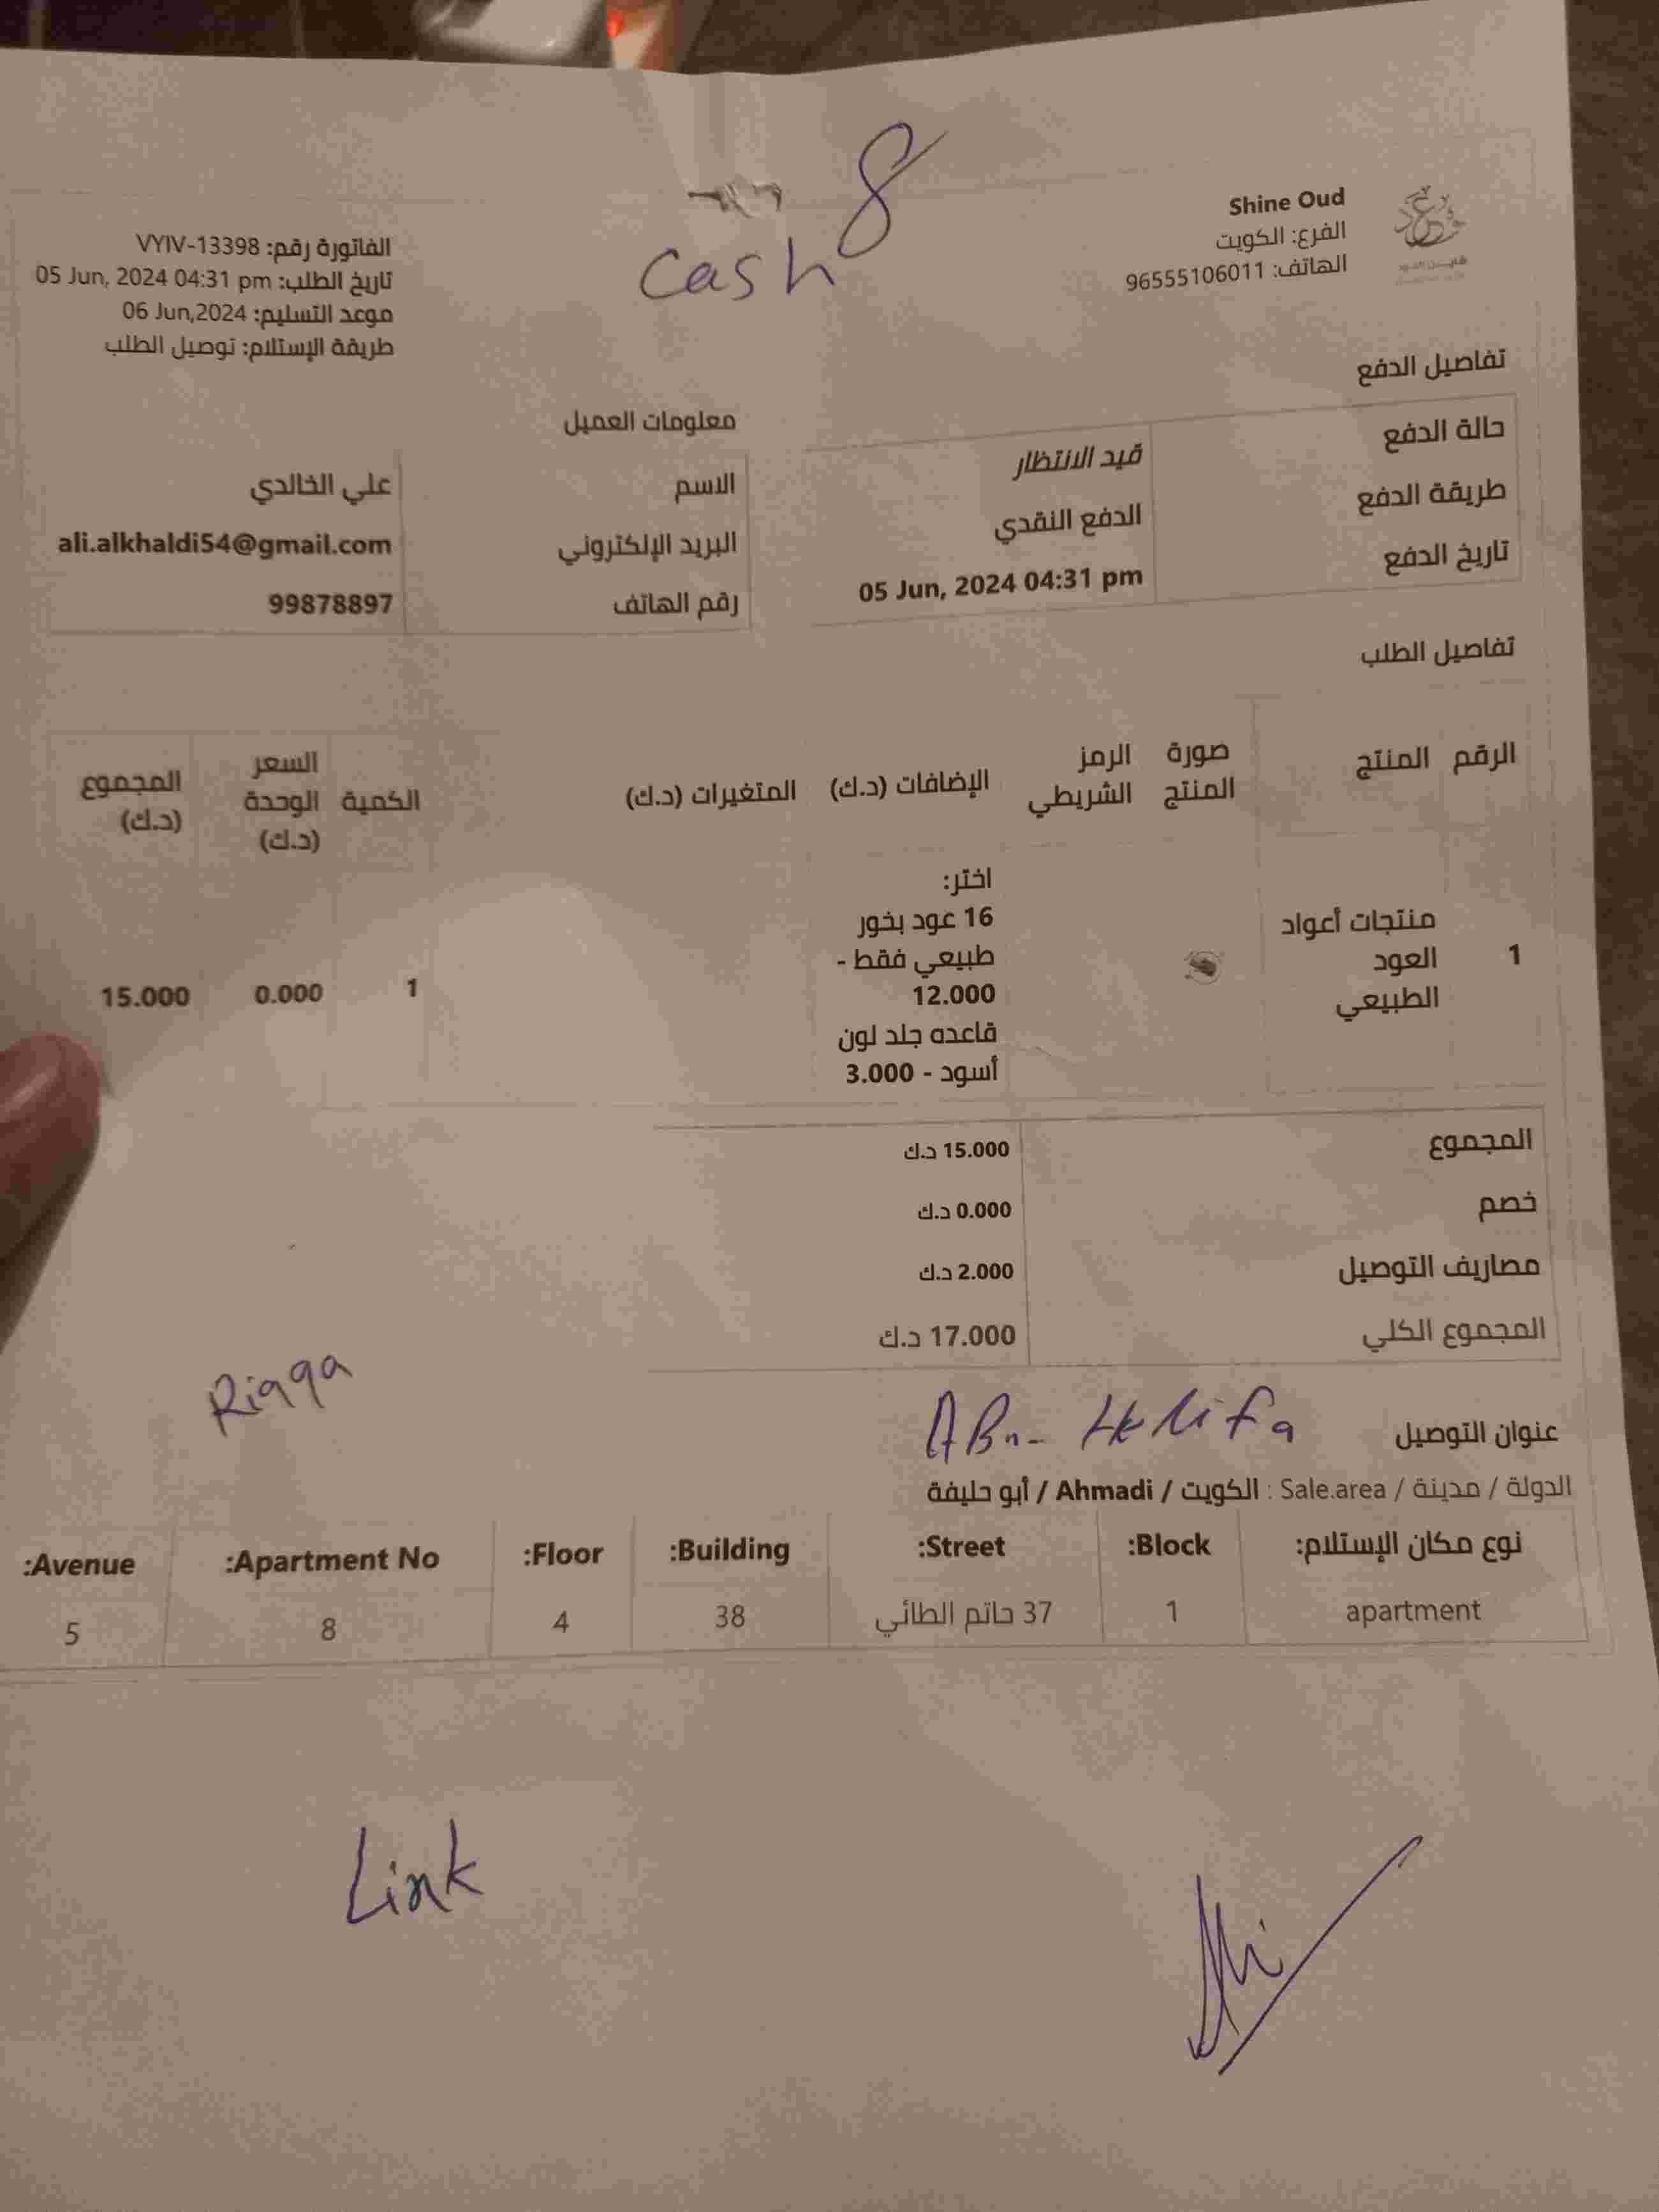 8
Cash
Shine Oud
الفرع: الكويت
الهاتف: 96555106011
شاين العود
الفاتورة رقم: VYIV-13398
تاريخ الطلب: 05 Jun, 2024 04:31 pm
موعد التسليم: 06 Jun,2024
طريقة الإستلام: توصيل الطلب
تفاصيل الدفع
حالة الدفع قيد الانتظار
طريقة الدفع الدفع النقدي
تاريخ الدفع 05 Jun, 2024 04:31 pm
معلومات العميل
الاسم علي الخالدي
البريد الإلكتروني ali.alkhaldi54@gmail.com
رقم الهاتف 99878897
تفاصيل الطلب
الرقم المنتج صورة المنتج الرمز الشريطي الإضافات (د.ك) المتغيرات (د.ك) الكمية السعر الوحدة (د.ك) المجموع (د.ك)
1 منتجات أعواد العود الطبيعي
اختر:
16 عود بخور
طبيعي فقط -
12.000
قاعده جلد لون
أسود - 3.000
1 0.000 15.000
المجموع 15.000 د.ك
خصم 0.000 د.ك
مصاريف التوصيل 2.000 د.ك
المجموع الكلي 17.000 د.ك
Riqqa
عنوان التوصيل ABu- Halifa
الدولة / مدينة / Sale.area : الكويت / Ahmadi / أبو حليفة
نوع مكان الإستلام: Block: Street: Building: Floor: Apartment No: Avenue:
apartment 1 37 حاتم الطائي 38 4 8 5
Link